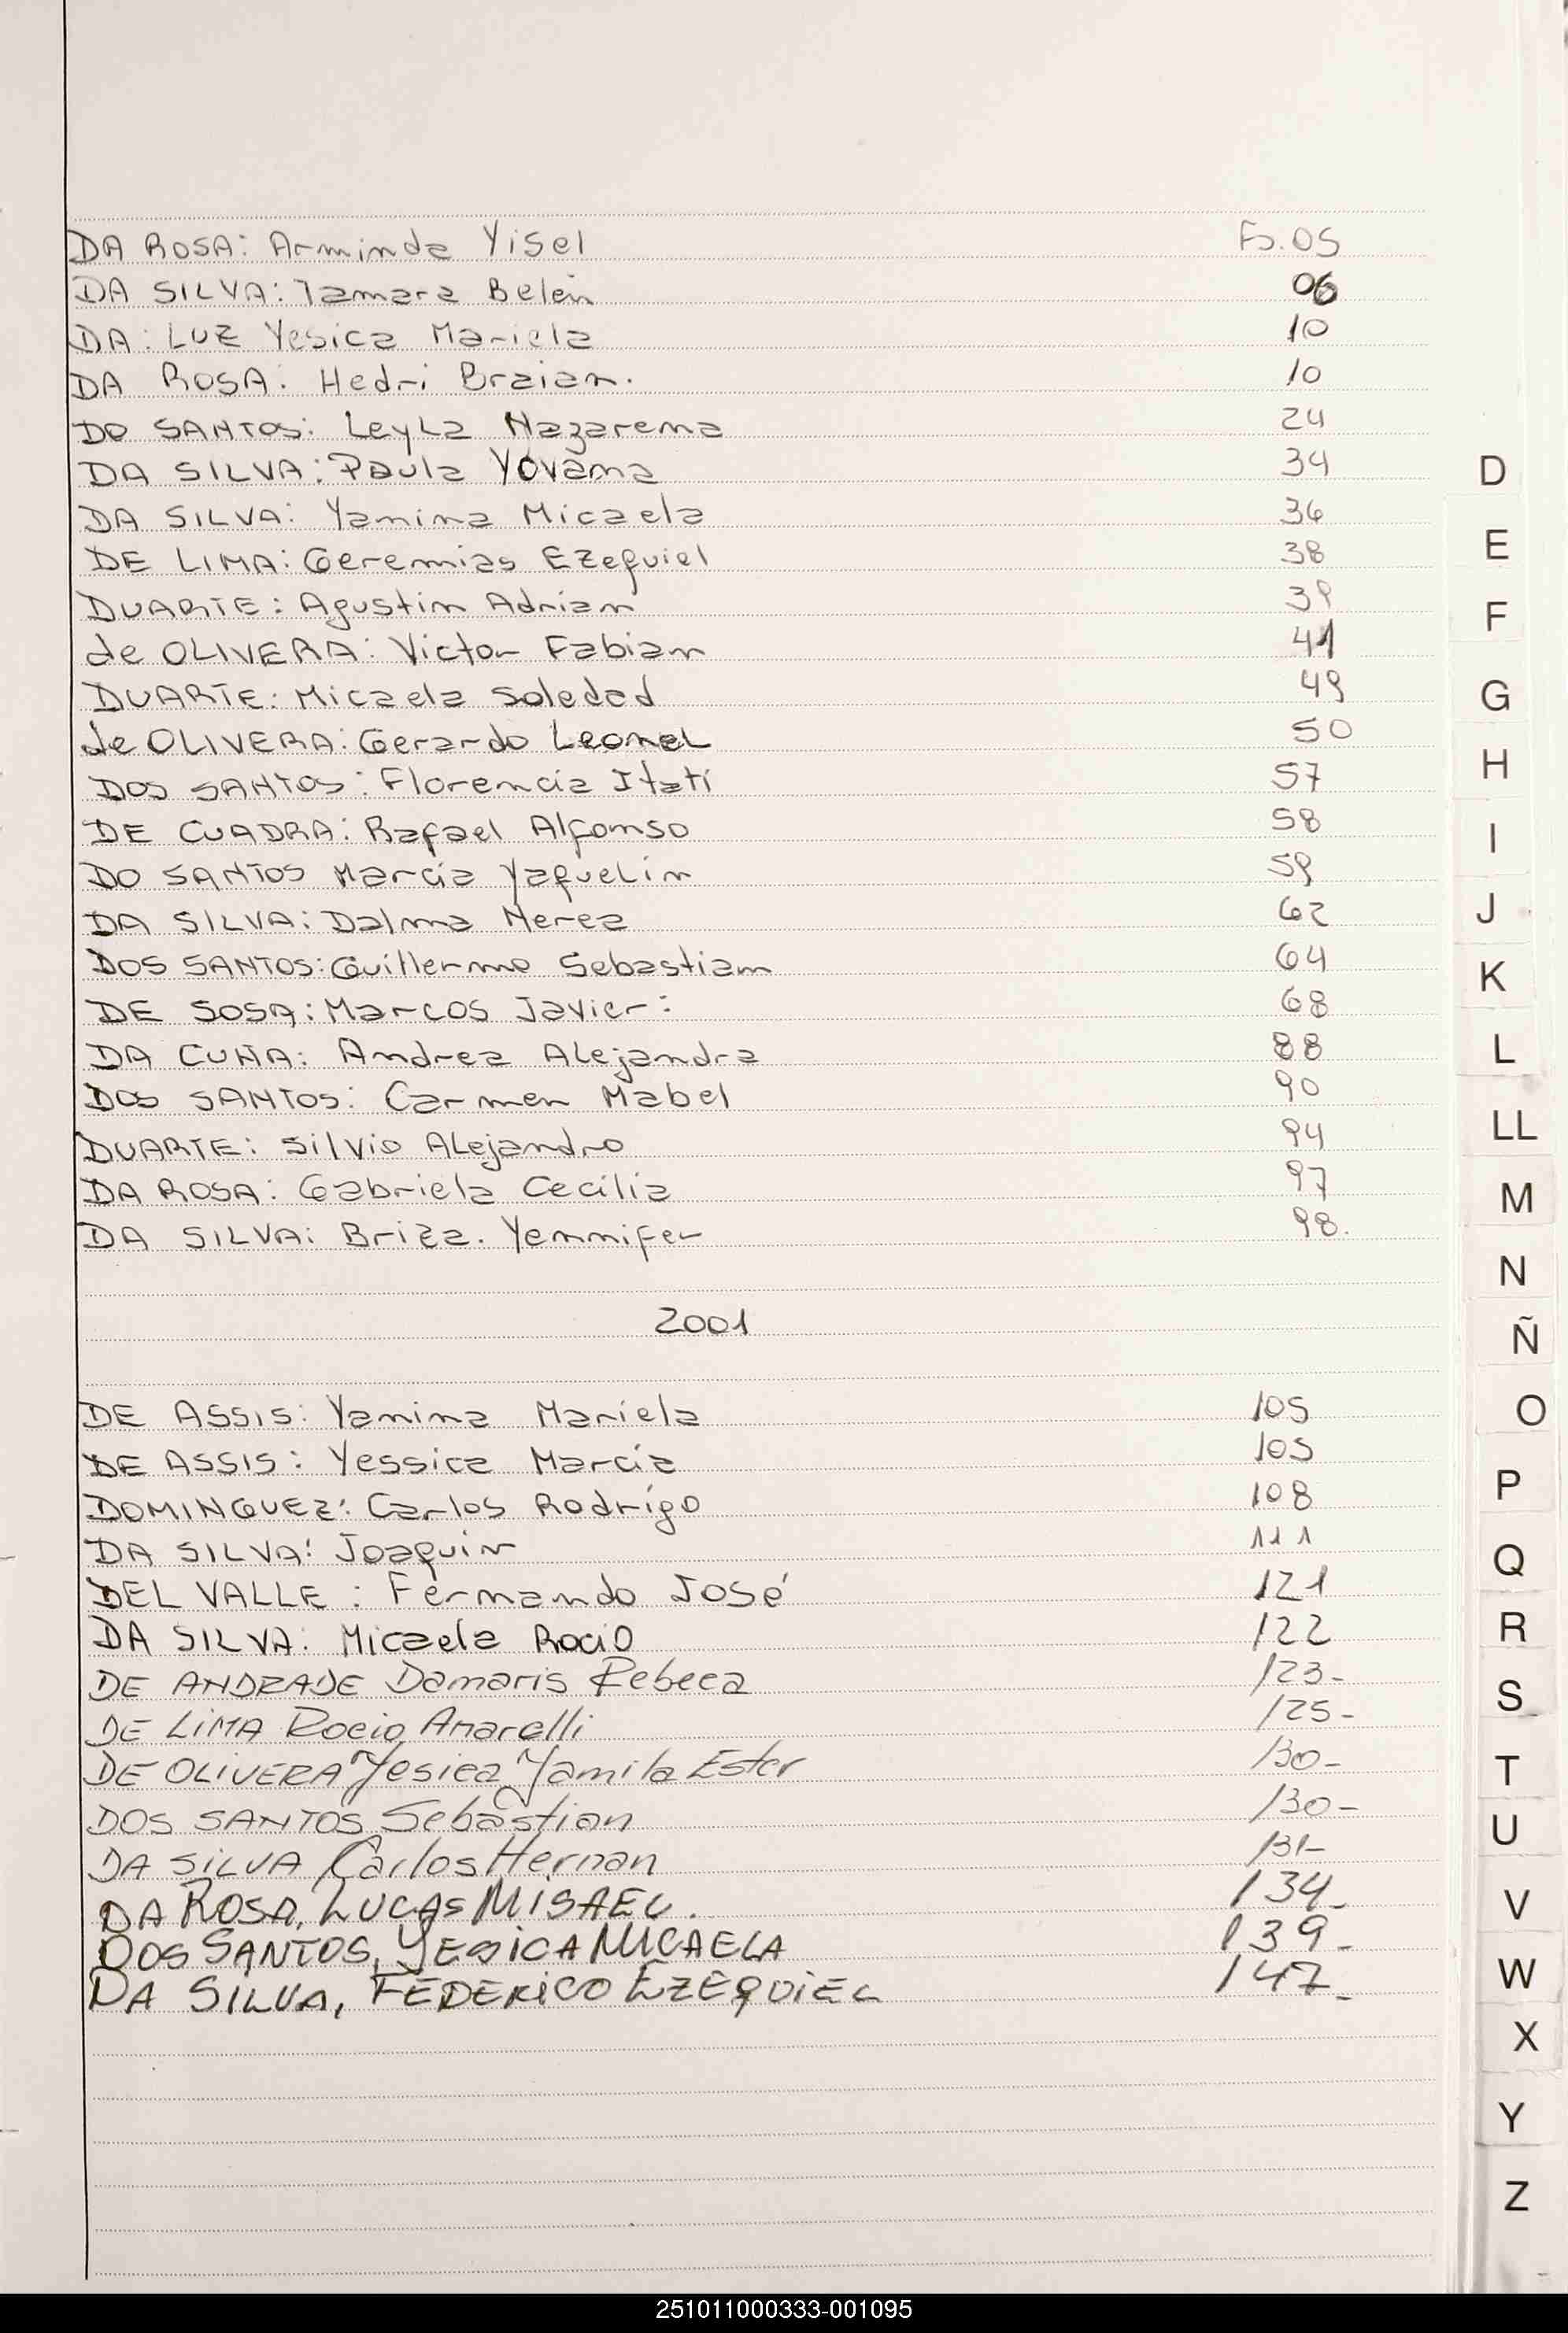 DA ROSA: Arminda Yisel Fs.05
DA SILVA: Tamara Belén 06
DA: LUZ Yesica Mariela 10
DA ROSA: Hedri Braian. 10
DO SANTOS: Leyla Nazarena 24
DA SILVA: Paula Yovana 34
DA SILVA: Yamina Micaela 36
DE LIMA: Geremias Ezequiel 38
DUARTE: Agustin Adrian 39
de OLIVERA: Victor Fabian 41
DUARTE: Micaela Soledad 49
de OLIVERA: Gerardo Leonel 50
DOS SANTOS: Florencia Itatí 57
DE CUADRA: Rafael Alfonso 58
DO SANTOS Marcia Yaquelin 59
DA SILVA: Dalma Nerea 62
DOS SANTOS: Guillermo Sebastian 64
DE SOSA: Marcos Javier: 68
DA CUÑA: Andrea Alejandra 88
DOS SANTOS: Carmen Mabel 90
DUARTE: Silvio Alejandro 94
DA ROSA: Gabriela Cecilia 97
DA SILVA: Briza. Yennifer 98.
2001
DE ASSIS: Yanina Mariela 105
DE ASSIS: Yessica Marcia 105
DOMINGUEZ: Carlos Rodrigo 108
DA SILVA: Joaquin 111
DEL VALLE: Fernando José 121
DA SILVA: Micaela Rocio 122
DE ANDRADE Damaris Rebeca 123-
DE LiMA Rocio Amarelli 125-
DE OLiVERA Yesica Yamila Ester 130-
DOS SANTOS Sebastian 130-
DA SiLVA Carlos Hernan 131-
DA ROSA, LUCAS MISAEL. 134-
DOS SANTOS, YESICA MICAELA 139-
DA SILVA, FEDERICO EZEQUIEL 147-
D
E
F
G
H
I
J
K
L
LL
M
N
Ñ
O
P
Q
R
S
T
U
V
W
X
Y
Z
251011000333-001095